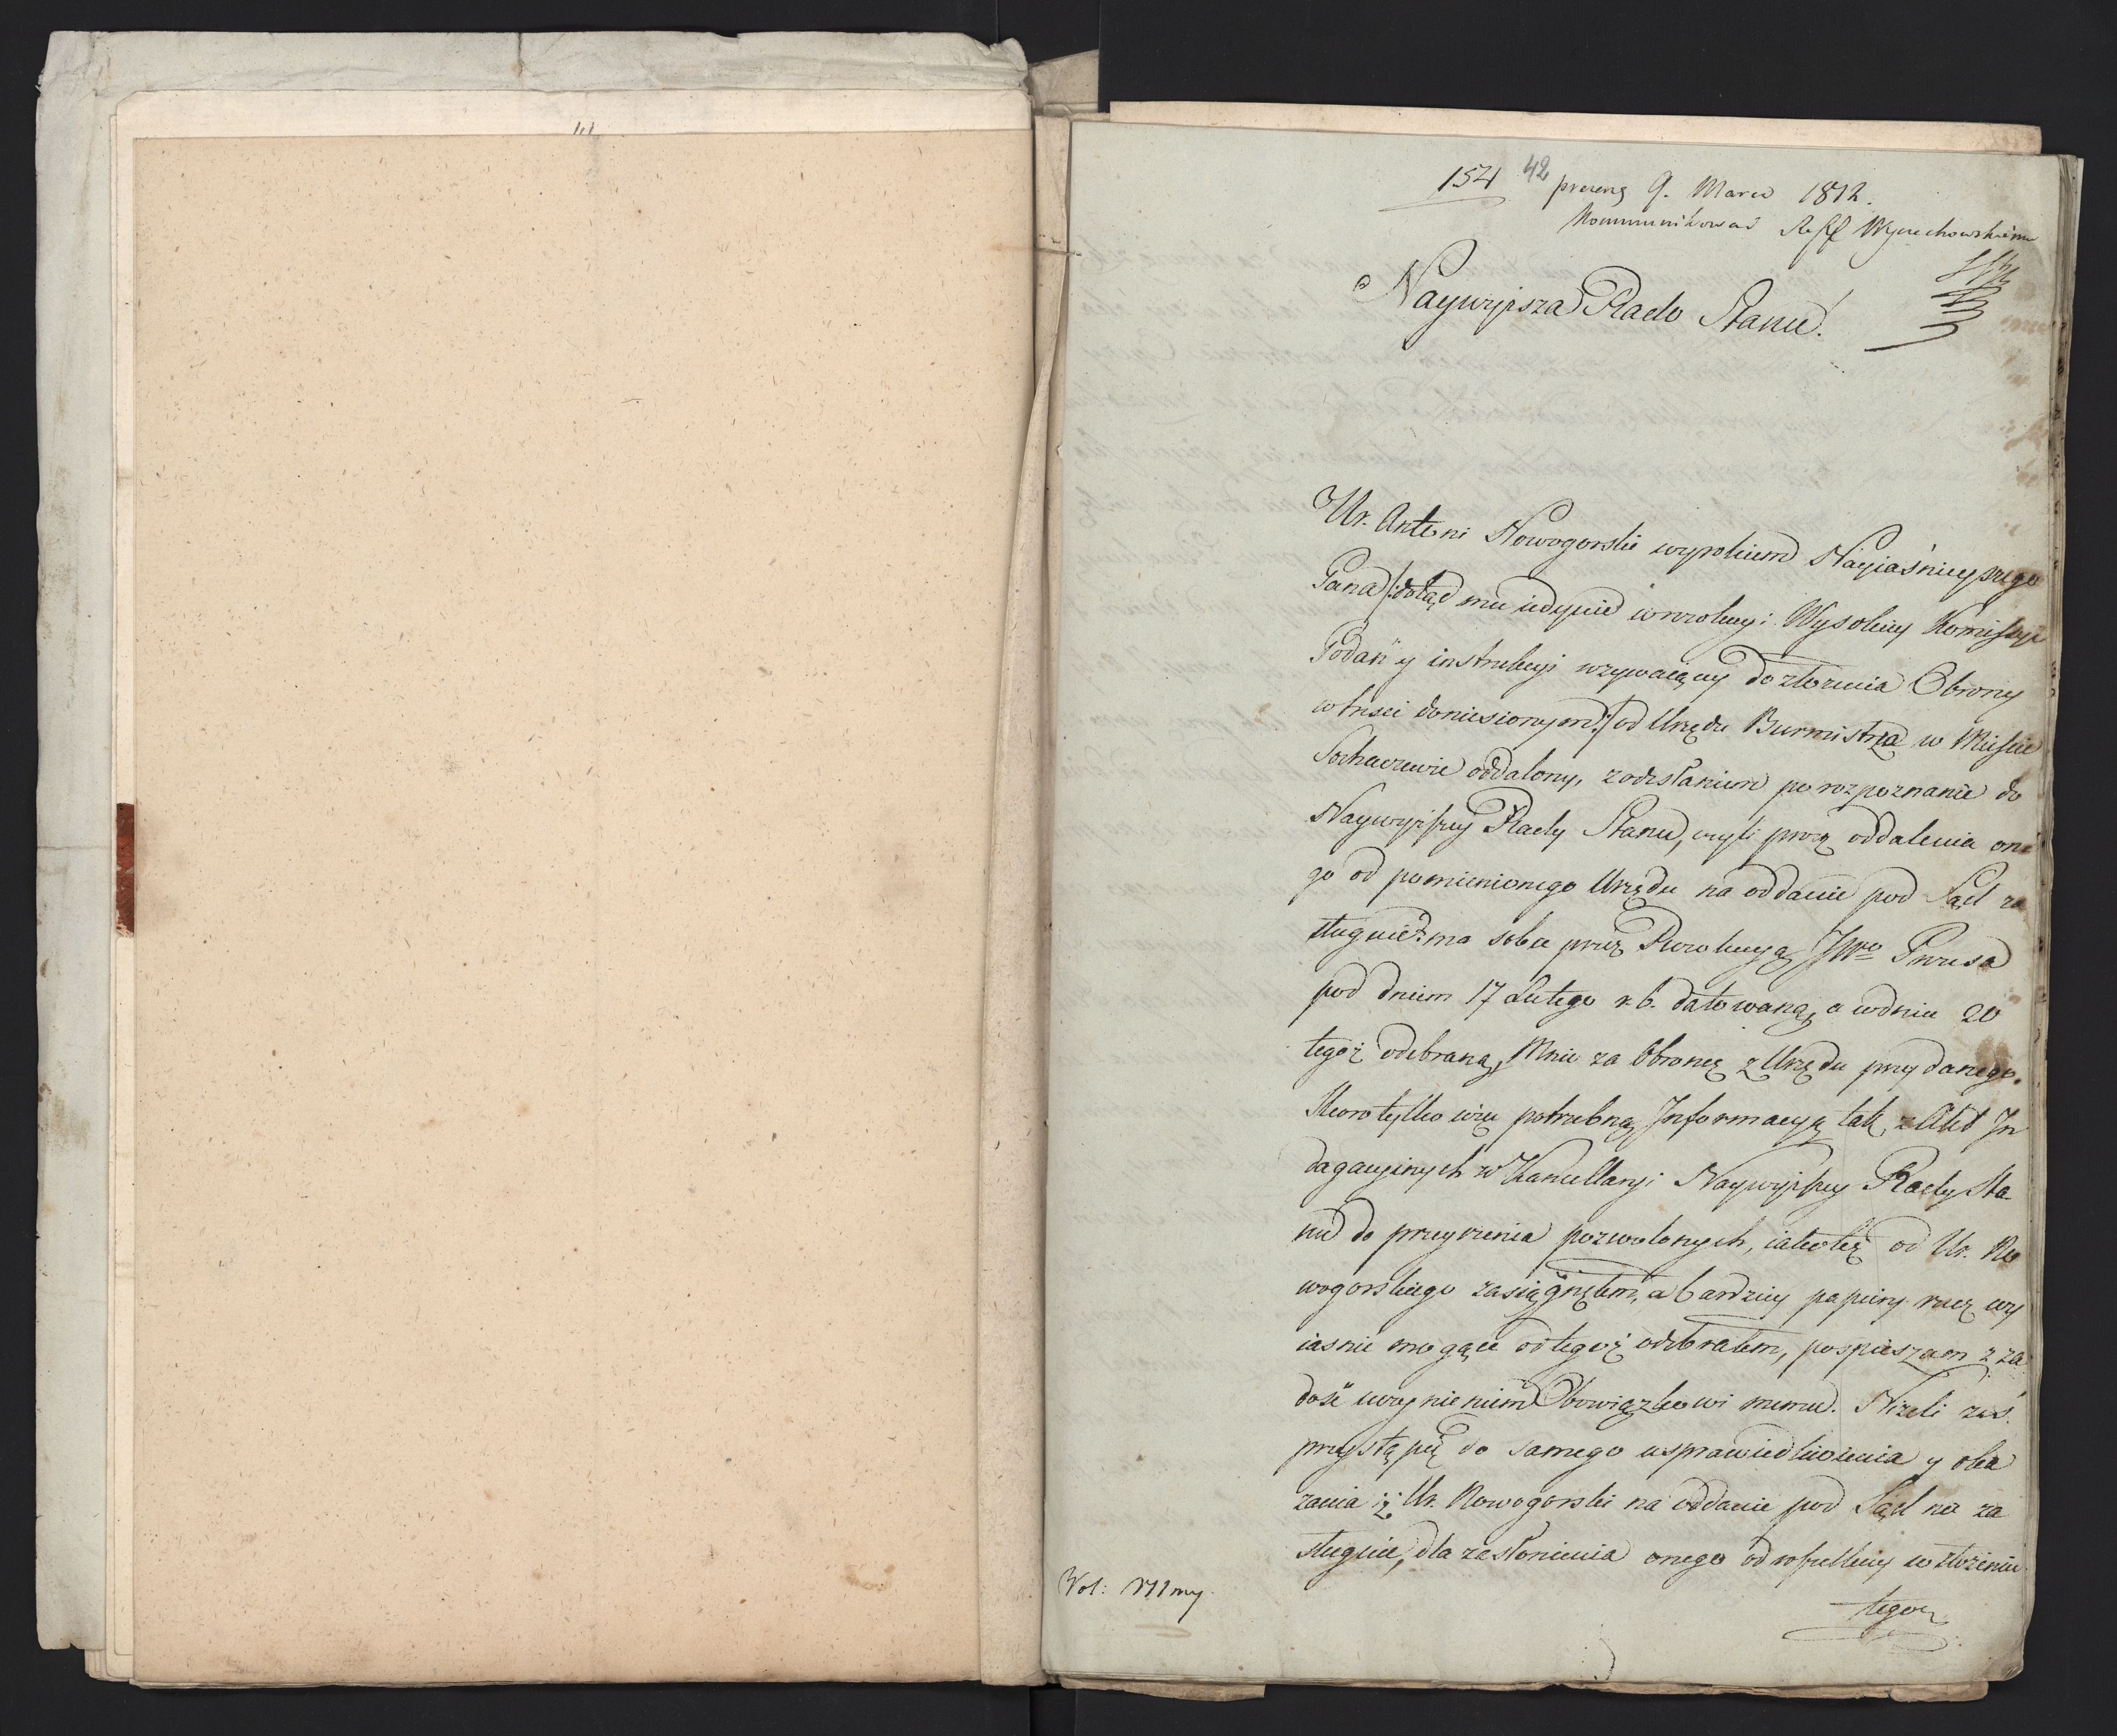 154 42 prezenz 9. Marca 1812.
Kommunikować Reff Wyczechowskiemu
Naywyższa Rado Stanu!
Ur. Antoni Nowogorski wyrokiem Nayiaśnieyszego
Pana /: dotąd mu iedynie w rezolucyi Wysokiey Komissyi
Podań y instrukcyi wzywaiącey do złożenia Obrony
w treści doniesionym :/ od Urzędu Burmistrza w Mieście
Sochaczewie oddalony, z odesłaniem po rozpoznanie do
Naywyższey Rady Stanu, czyli prócz oddalenia one
go od pomienionego Urzędu na oddanie pod Sąd za
sługuie? ma sobie przez Rezolucyą JWgo Prezesa
pod dniem 17 Lutego r. b. datowaną, a w dniu 20
tegoż odebraną, Mnie za Obrońcę z Urzędu przydanego.
Skoro tylko więc potrzebną Informacyą tak z Akt In
dagacyinych w Kancellaryi Naywyższey Rady Sta
nu do przeyrzenia pozwolonych, iako też od Ur. No
wogorskiego zasiągnąłem, a bardziey papiery rzecz wy
iaśnić mogące od tegoż odebrałem, pospieszam z za
dość uczynieniem Obowiązkowi memu. Nizeli zaś
przystąpię do samego usprawiedliwienia y oka
zania iż Ur. Nowogorski na oddanie pod Sąd nie za
sługuie, dla zasłonienia onego od wszelkiey w złożeniu
tegoz
Vol: VIImy